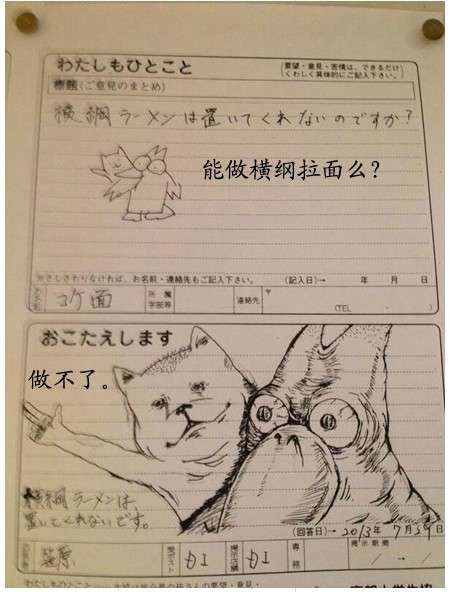 わたしもひとこと
要望・意見・苦情は、できるだけ
くわしく具体的にご記入下さい。
標題(ご意見のまとめ)
横綱ラーメンは置いてくれないのですか?
能做横纲拉面么?
さしさわりなければ、お名前・連絡先もご記入下さい。 (記入日)→ 年 月 日
コケ面 所属 学部等 連絡先 〒
(TEL )
おこたえします
做不了。
横綱ラーメンは、
置いてくれないです。
(回答日)→2013年 7月29日
笠原 掲示店舗 専務 掲示期間